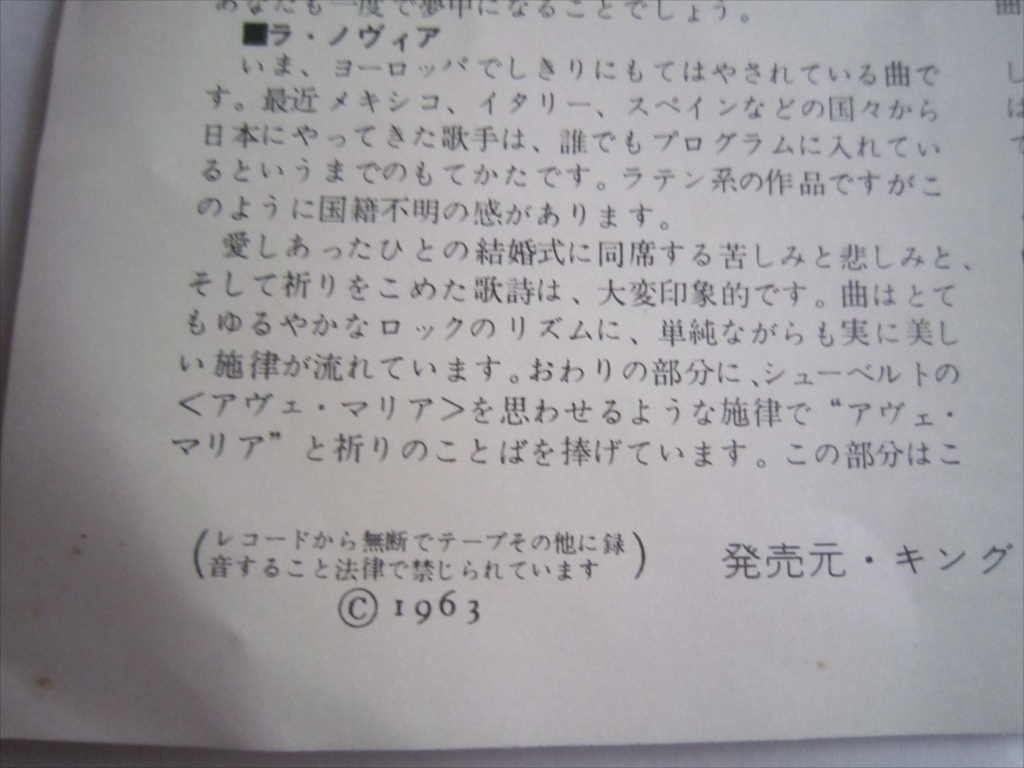 あなたも一度で夢中になることでしょう。
■ラ・ノヴィア
いま、ヨーロッパでしきりにもてはやされている曲で
す。最近メキシコ、イタリー、スペインなどの国々から
日本にやってきた歌手は、誰でもプログラムに入れてい
るというまでのもてかたです。ラテン系の作品ですがこ
のように国籍不明の感があります。
愛しあったひとの結婚式に同席する苦しみと悲しみと、
そして祈りをこめた歌詩は、大変印象的です。曲はとて
もゆるやかなロックのリズムに、単純ながらも実に美し
い施律が流れています。おわりの部分に、シューベルトの
<アヴェ・マリア>を思わせるような施律で“アヴェ・
マリア”と祈りのことばを捧げています。この部分はこ
(レコードから無断でテープその他に録
音すること法律で禁じられています)
© 1963
発売元・キング